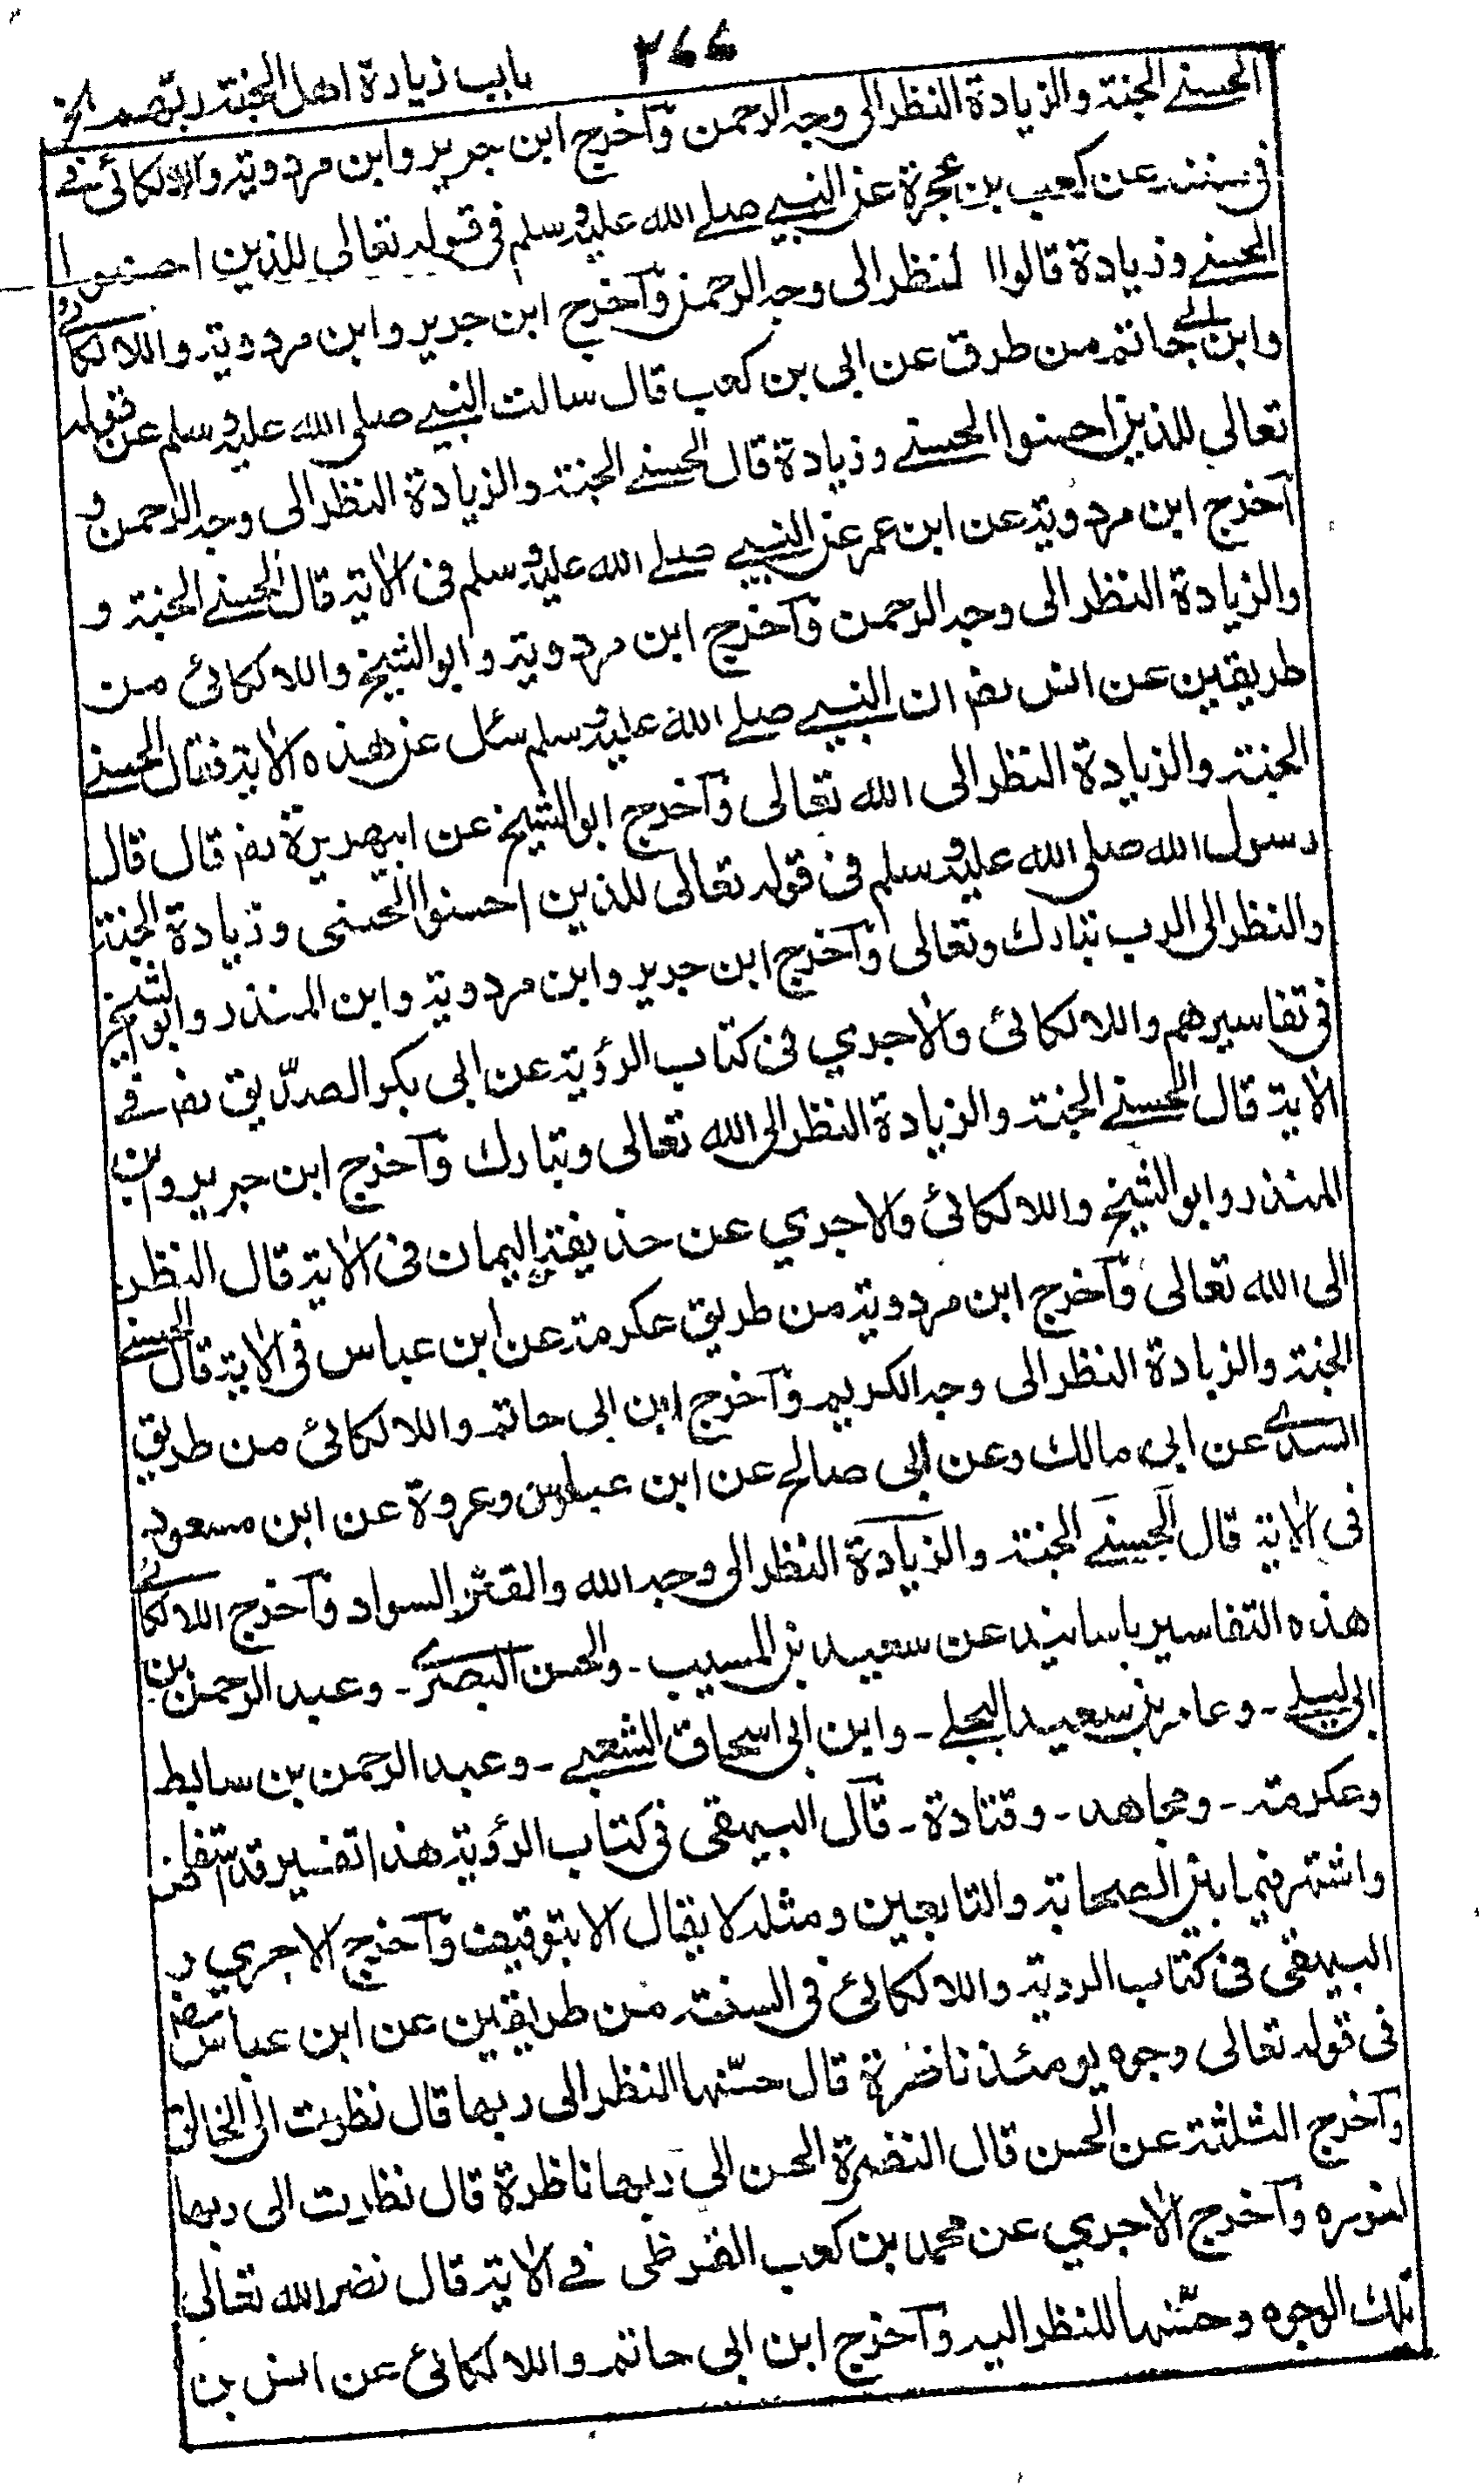 باب زيادة اهل الجنة ربهم الخ ٢٦٦
الحسنے الجنة والزيادة النظر الى وجه الرحمن وآخرج ابن جرير وابن مردوية واللالكائى فے
فى سننه عن كعب بن عجرة عن النبے صلے الله عليه وسلم فى قوله تعالى للذين احسنوا
الحسنے وزيادة قالوا النظر الى وجه الرحمن وآخرج ابن جرير وابن مردوية واللالكائے
وابن ابے حاتم من طرق عن ابى بن كعب قال سالت النبے صلى الله عليه وسلم عن قوله
تعالى للذين احسنوا الحسنے وزيادة قال الحسنے الجنة والزيادة النظر الى وجه الرحمن و
آخرج ابن مردوية عن ابن عمر عن النبے صلے الله عليه وسلم فى الاية قال الحسنے الجنة و
والزيادة النظر الى وجه الرحمن وآخرج ابن مردوية وابوالشيخ واللالكائى من
طريقين عن انس رض ان النبے صلے الله عليه وسلم سئل عن هذه الاية فقال الحسنے
الجنة والزيادة النظر الى الله تعالى وآخرج ابوالشيخ عن ابيهريرة رض قال قال
رسول الله صلى الله عليه وسلم فى قوله تعالى للذين احسنوا الحسنى وزيادة الجنة
والنظر الى الرب تبارك وتعالى وآخرج ابن جرير وابن مردوية وابن المنذر وابوالشيخ
فى تفاسيرهم واللالكائى والاجري فى كتاب الرؤية عن ابى بكر الصدّيق رض فے
الاية قال الحسنے الجنة والزيادة النظر الى الله تعالى وتبارك وآخرج ابن جرير وابن
المنذر وابوالشيخ واللالكائى والاجري عن حذيفة بن اليمان فى الاية قال النظر
الى الله تعالى وآخرج ابن مردوية من طريق عكرمة عن ابن عباس فى الاية قال الحسنے
الجنة والزيادة النظر الى وجه الكريم وآخرج ابن ابى حاتم واللالكائى من طريق
السدے عن ابى مالك وعن ابى صالح عن ابن عباس وعروة عن ابن مسعود
فى الاية قال الحسنے الجنة والزيادة النظر الى وجه الله والقتر السواد وآخرج اللالكائے
هذه التفاسير باسانيد عن سعيد بن المسيب ۔ والحسن البصرے ۔ وعبد الرحمن بن
ابى ليلے ۔ وعامر بن سعيد البجلے ۔ وابن ابى اسحاق الشعبے ۔ وعبد الرحمن بن سابط
وعكرمة ۔ ومجاهد ۔ وقتادة ۔ قآل البيهقى فى كتاب الرؤية هذا تفسير قد استفاض
واشتهر فيما بين الصحابة والتابعين ومثله لا يقال الا بتوقيف وآخرج الاجري و
البيهقى فى كتاب الروية واللالكائى فى السنة من طريقين عن ابن عباس رض
فى قوله تعالى وجوه يومئذ ناضرة قال حسّنها النظر الى ربها قال نظرت الى الخالق
وآخرج الثلثة عن الحسن قال النضرة الحسن الى ربها ناظرة قال نظرت الى ربها
لنوره وآخرج الاجري عن محمد بن كعب القرظى فے الاية قال نضر الله تعالى
تلك الوجوه وحسّنها للنظر اليه وآخرج ابن ابى حاتم واللالكائى عن انس بن